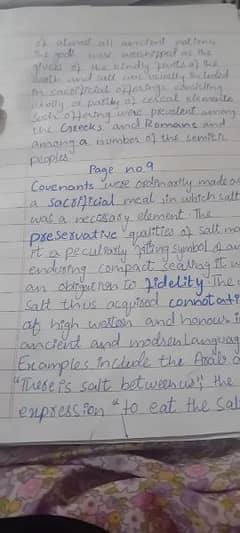 of almost all ancient nations
the gods were worshipped as the
givers of the kindly fruits of the
earth and salt was usually included
in sacrificial offerings consisting
wholly or partly of cereal elements
such offering were prevalent among
the Greeks and Romans and
among a number of the semitic
peoples
Page no 9
Covenants were ordinarily made o
a sacrificial meal in which salt
was a necessary element. The
preservative qualities of salt ma
it a peculiarly fitting symbol of an
enduring compact sealing it w
an obligation to fidelity. The
salt thus acquired connotati
of high and honour i
ancient and modren languag
Examples include the Arab a
"There is salt between us"; the
expression "to eat the sal